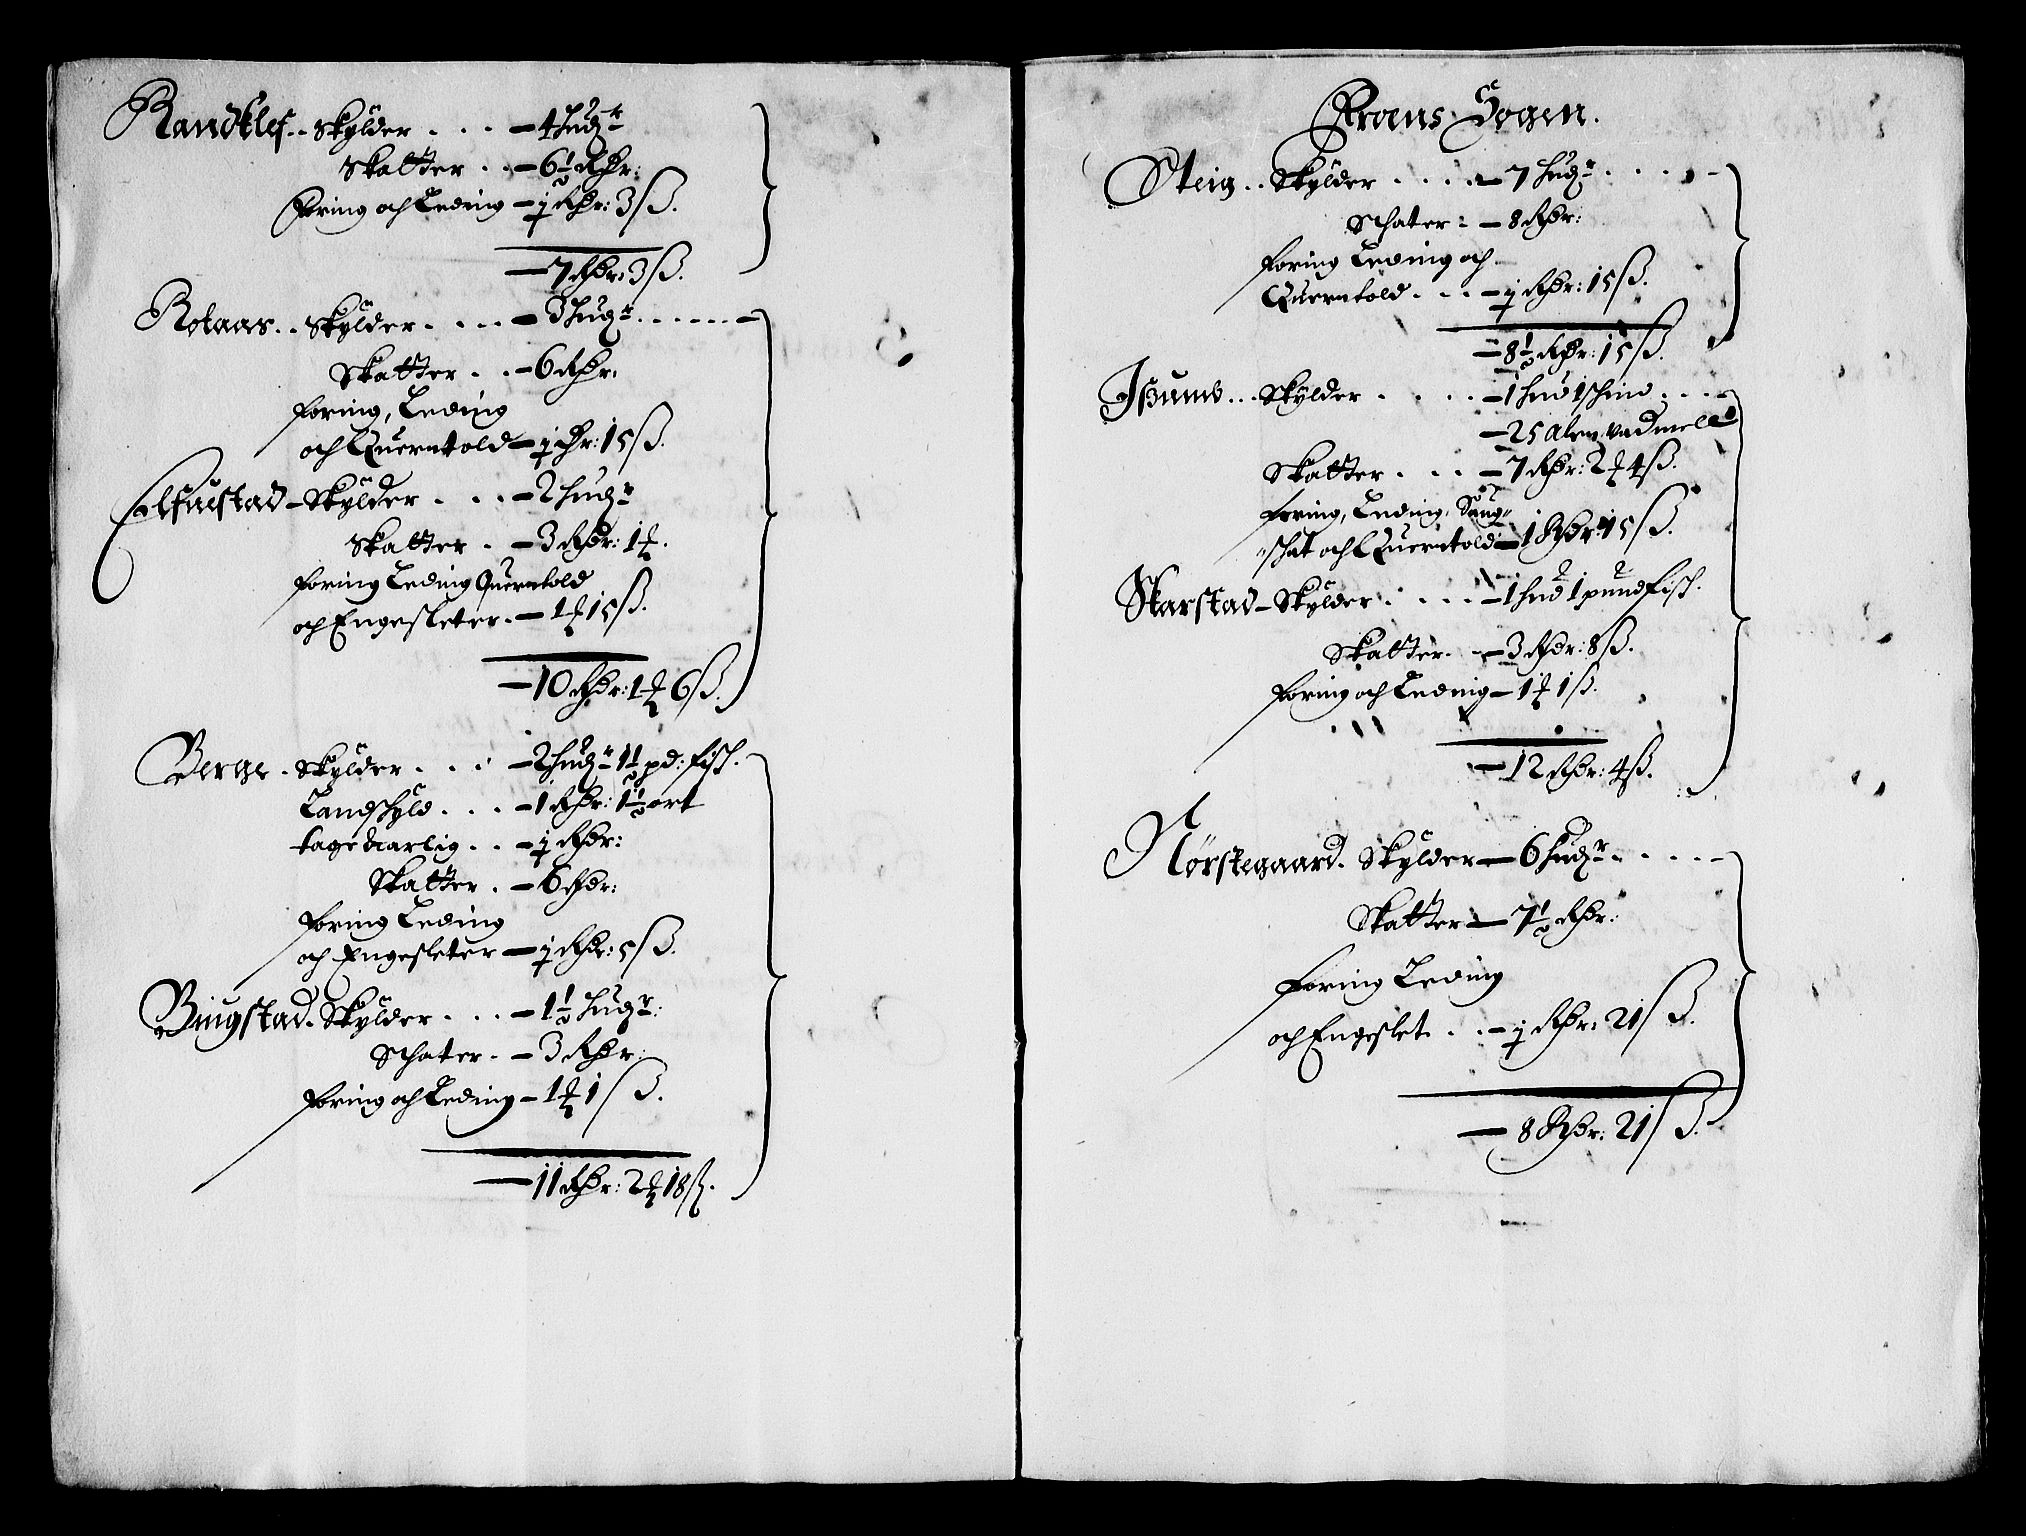 Randklef .. Skylder . . . . — 4 hudr
Skatter . . — 6½ Rdr:
Foring och Leding — ½ Rdr: 3 ß.
— 7 Rdr: 3 ß.
Rolaas .. Skylder . . . . — 3 hudr . . . . . . —
Skatter . . — 6 Rdr.
foring, Leding
och Querntold — ½ dr: 15 ß.
Elfuestad — Skylder . . . . — 2 hudr
Skatter . — 3 Rdr: 1 ꝝ.
foring Leding Querntold
och Engesletter . — 1 ꝝ 15 ß.
— 10 Rdr: 1 ꝝ 6 ß.
Berge . Skylder . . . — 2 hudr 1½ pd: fisk.
Landskyld . . . — 1 Rdr: 1½ ort
tage aarlig . . — ½ Rdr:
Skatter . — 6 Rdr:
foring Leding
och Engesleter — ½ Rdr: 5 ß.
Biugstad . Skylder . . . — 1½ hudr:
Schater . — 3 Rdr:
foring och Leding — 1 ꝝ 1 ß.
— 11 Rdr: 2 ꝝ 18 ß.
Froens Sogen.
Steig .. Skylder . . . . — 7 hudr . . . . . —
Schater : — 8 Rdr:
foring Leding och
Querntold . . . — ½ Rdr: 15 ß.
— 8½ Rdr: 15 ß.
Jßumb ... Skylder . . . . — 1 hud 1 schind . . . —
— 25 alen vadmell
Skatter . . . — 7 Rdr: 2 ꝝ 4 ß.
foring, Leding,
schat och Querntold — 1 Rdr: 15 ß.
Skarstad — Skylder . . . . — 1 hud 1 pund fisk.
Skatter . — 3 Rdr: 8 ß.
foring och Leding — 1 ꝝ 1 ß.
— 12 Rdr: 4 ß.
Nörstegaard . Skylder — 6 hudr . . . . —
Skatter — 7½ Rdr:
foring Leding
och Engeslet . . — ½ Rdr: 21 ß.
— 8 Rdr: 21 ß.